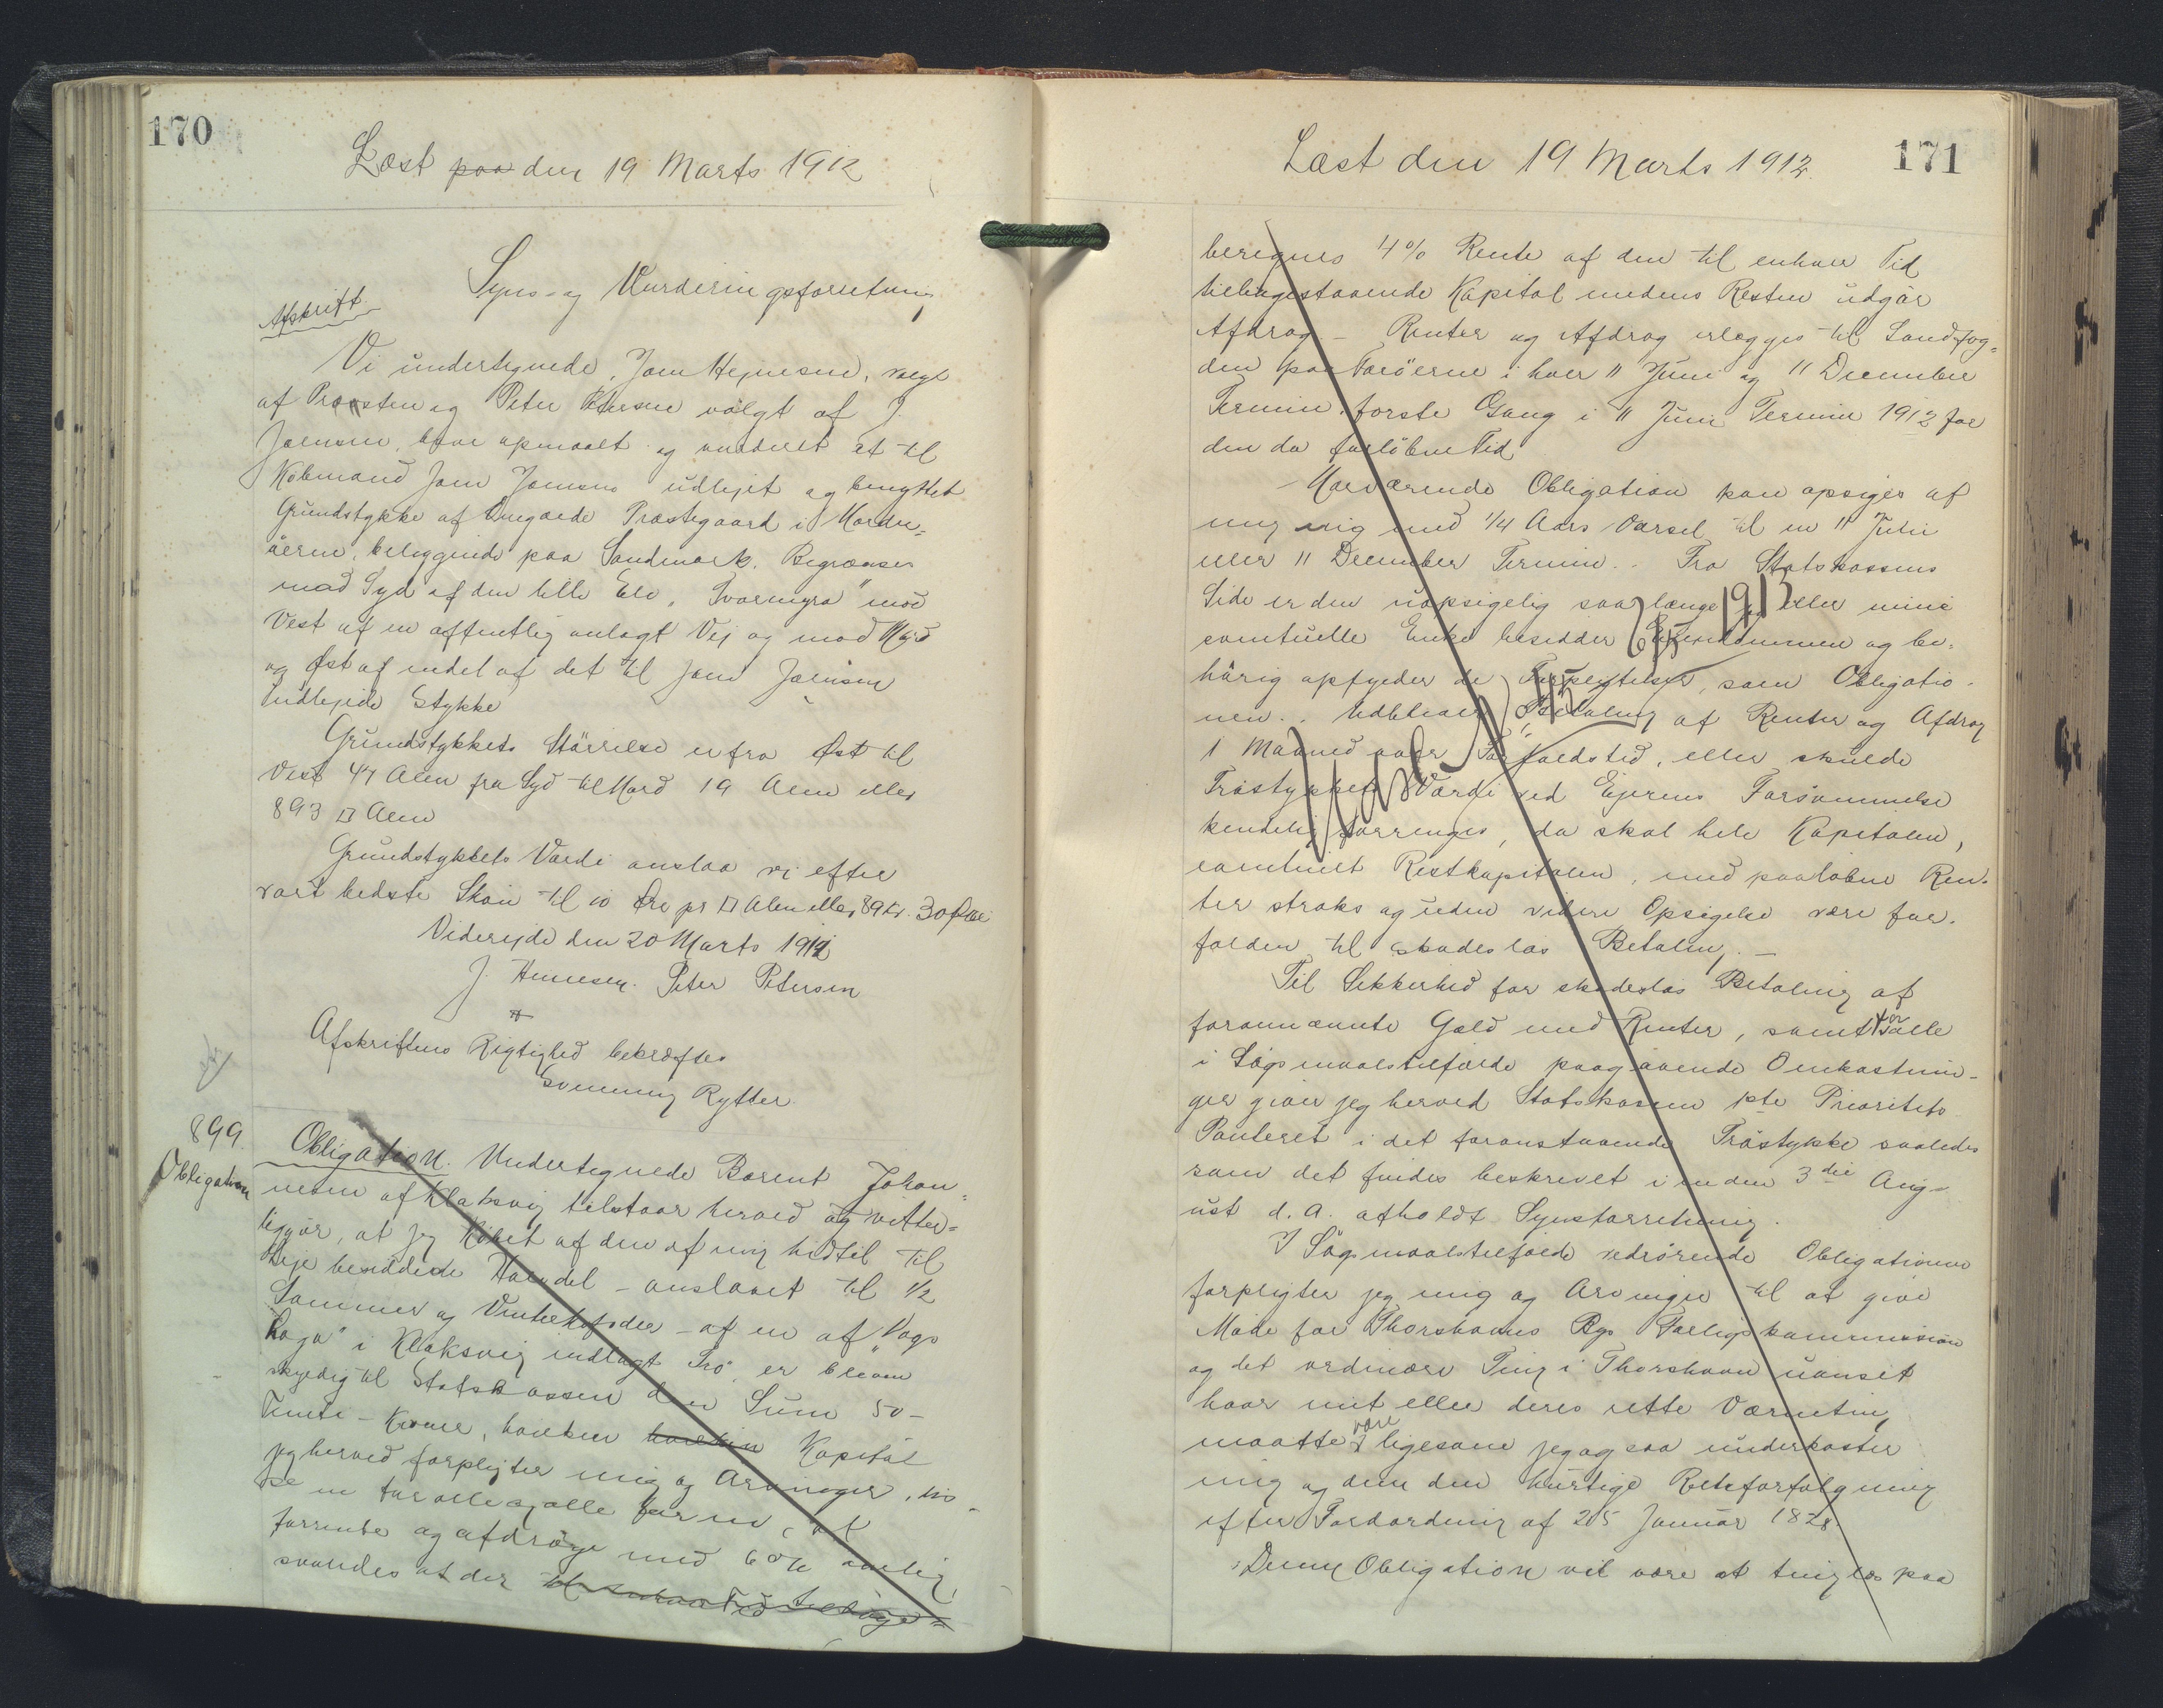 170
Læst paa den 19 Marts 1912
Syns- og Vurderingsforretning
Afskrift
Vi undertegnede, Joen Hejnesen, valgt
af Provsten og Peter Petersen valgt af J.
Joensen, have opmaalt og vurderet et til
Købmand Joen Joensen udlejet og benyttet
Grundstykke af Præstegaard i Nordre-
øerne, beliggende paa Sandmark. Begrænses
mod Syd af den lille Elv, "Svarmyra" mod
Vest af en offentlig anlagt Vej og mod Nord
og Øst af endel af det til Joen Joensen
udlejede Stykke
Grundstykkets Störrelse er fra Øst til
Vest 47 Alen fra Syd til Nord 19 Alen eller
893 □ Alen
Grundstykkets Værdi anslaa vi efter
vort bedste Skön til 10 Øre pr □ Alen eller 89 Kr. 30 Øre
Videreide den 20 Marts 1912
J. Hennesen. Peter Petersen
Afskriftens Rigtighed bekræftes
Sverning Rytter.
899.
Obligation
Obligation. Undertegnede Barent Johan-
nesen af Klaksvig tilstaar herved og vitter-
liggör, at jeg Köbet af den af mig hidtil til
Leje besiddede Halvdel - anslaaet til 1/2
Sommer og Vinterkofoder - af en af "Vags
Haga" i Klaksvig indlagt Trö, er bleven
skyldig til Statskassen den Sum 50 -
Femti - Kroner, hvilken hvilken Kapital
jeg herved forpligter mig og Arvinger, en
for alle og alle for en, at
forrente og afdrage med 6 % aarlig,
saaledes at der til enhver Tid tilbage=
171
Læst den 19 Marts 1912.
beregnes 4 % Rente af den til enhver Tid
tilbagestaaende Kapital medens Resten udgör
Afdrag. - Renter og Afdrag erlægges til Landfog-
den paa Færöerne i hver 11 Juni og 11 December
Termin, förste Gang i 11 Juni Termin 1912 for
den da forløbne Tid
Nærværende Obligation kan opsiges af
mig med 1/4 Aars Varsel til en 11 Juni
eller 11 December Termin. Fra Statskassens
Side er den uopsigelig saa længe jeg eller min
eventuelle Enke besidder Ejendommen og be-
hörig opfylder de Forpligtelser, som Obligatio-
nen. Udebliver Betaling af Renter og Afdrag
1 Maaned over Forfaldstid, eller skulde
Tröstykkets Værdi ved Ejerens Forsömmelse
kendelig forringes, da skal hele Kapitalen,
eventuelt Restkapitalen, med paalöbne Ren-
ter straks og uden videre Opsigelse være for-
falden til skadeslös Betaling. -
Til Sikkerhed for skadeslös Betaling af
forannævnte Gæld med Renter, samt for alle
i Sögsmaalstilfælde paagaaende Omkostnin-
ger giver jeg herved Statskassen 1ste Prioritets
Panteret i det foranstaaende Tröstykke saaledes
som det findes beskrevet i en den 3 die Aug-
ust d. A. afholdt Synsforretning.
I Sögsmaalstilfælde vedrörende Obligationen
forpligter jeg mig og Arvinger til at give
Möde for Thorshavns Bys Forligskommission
og det ordinære Ting i Thorshavn uanset
hvor mit eller deres rette Værneting
maatte være ligesom jeg ogsaa underkaster
mig og dem den hurtige Retsforfølgning
efter Forordning af 25 Januar 1828.
Denne Obligation vil være at tinglæs paa